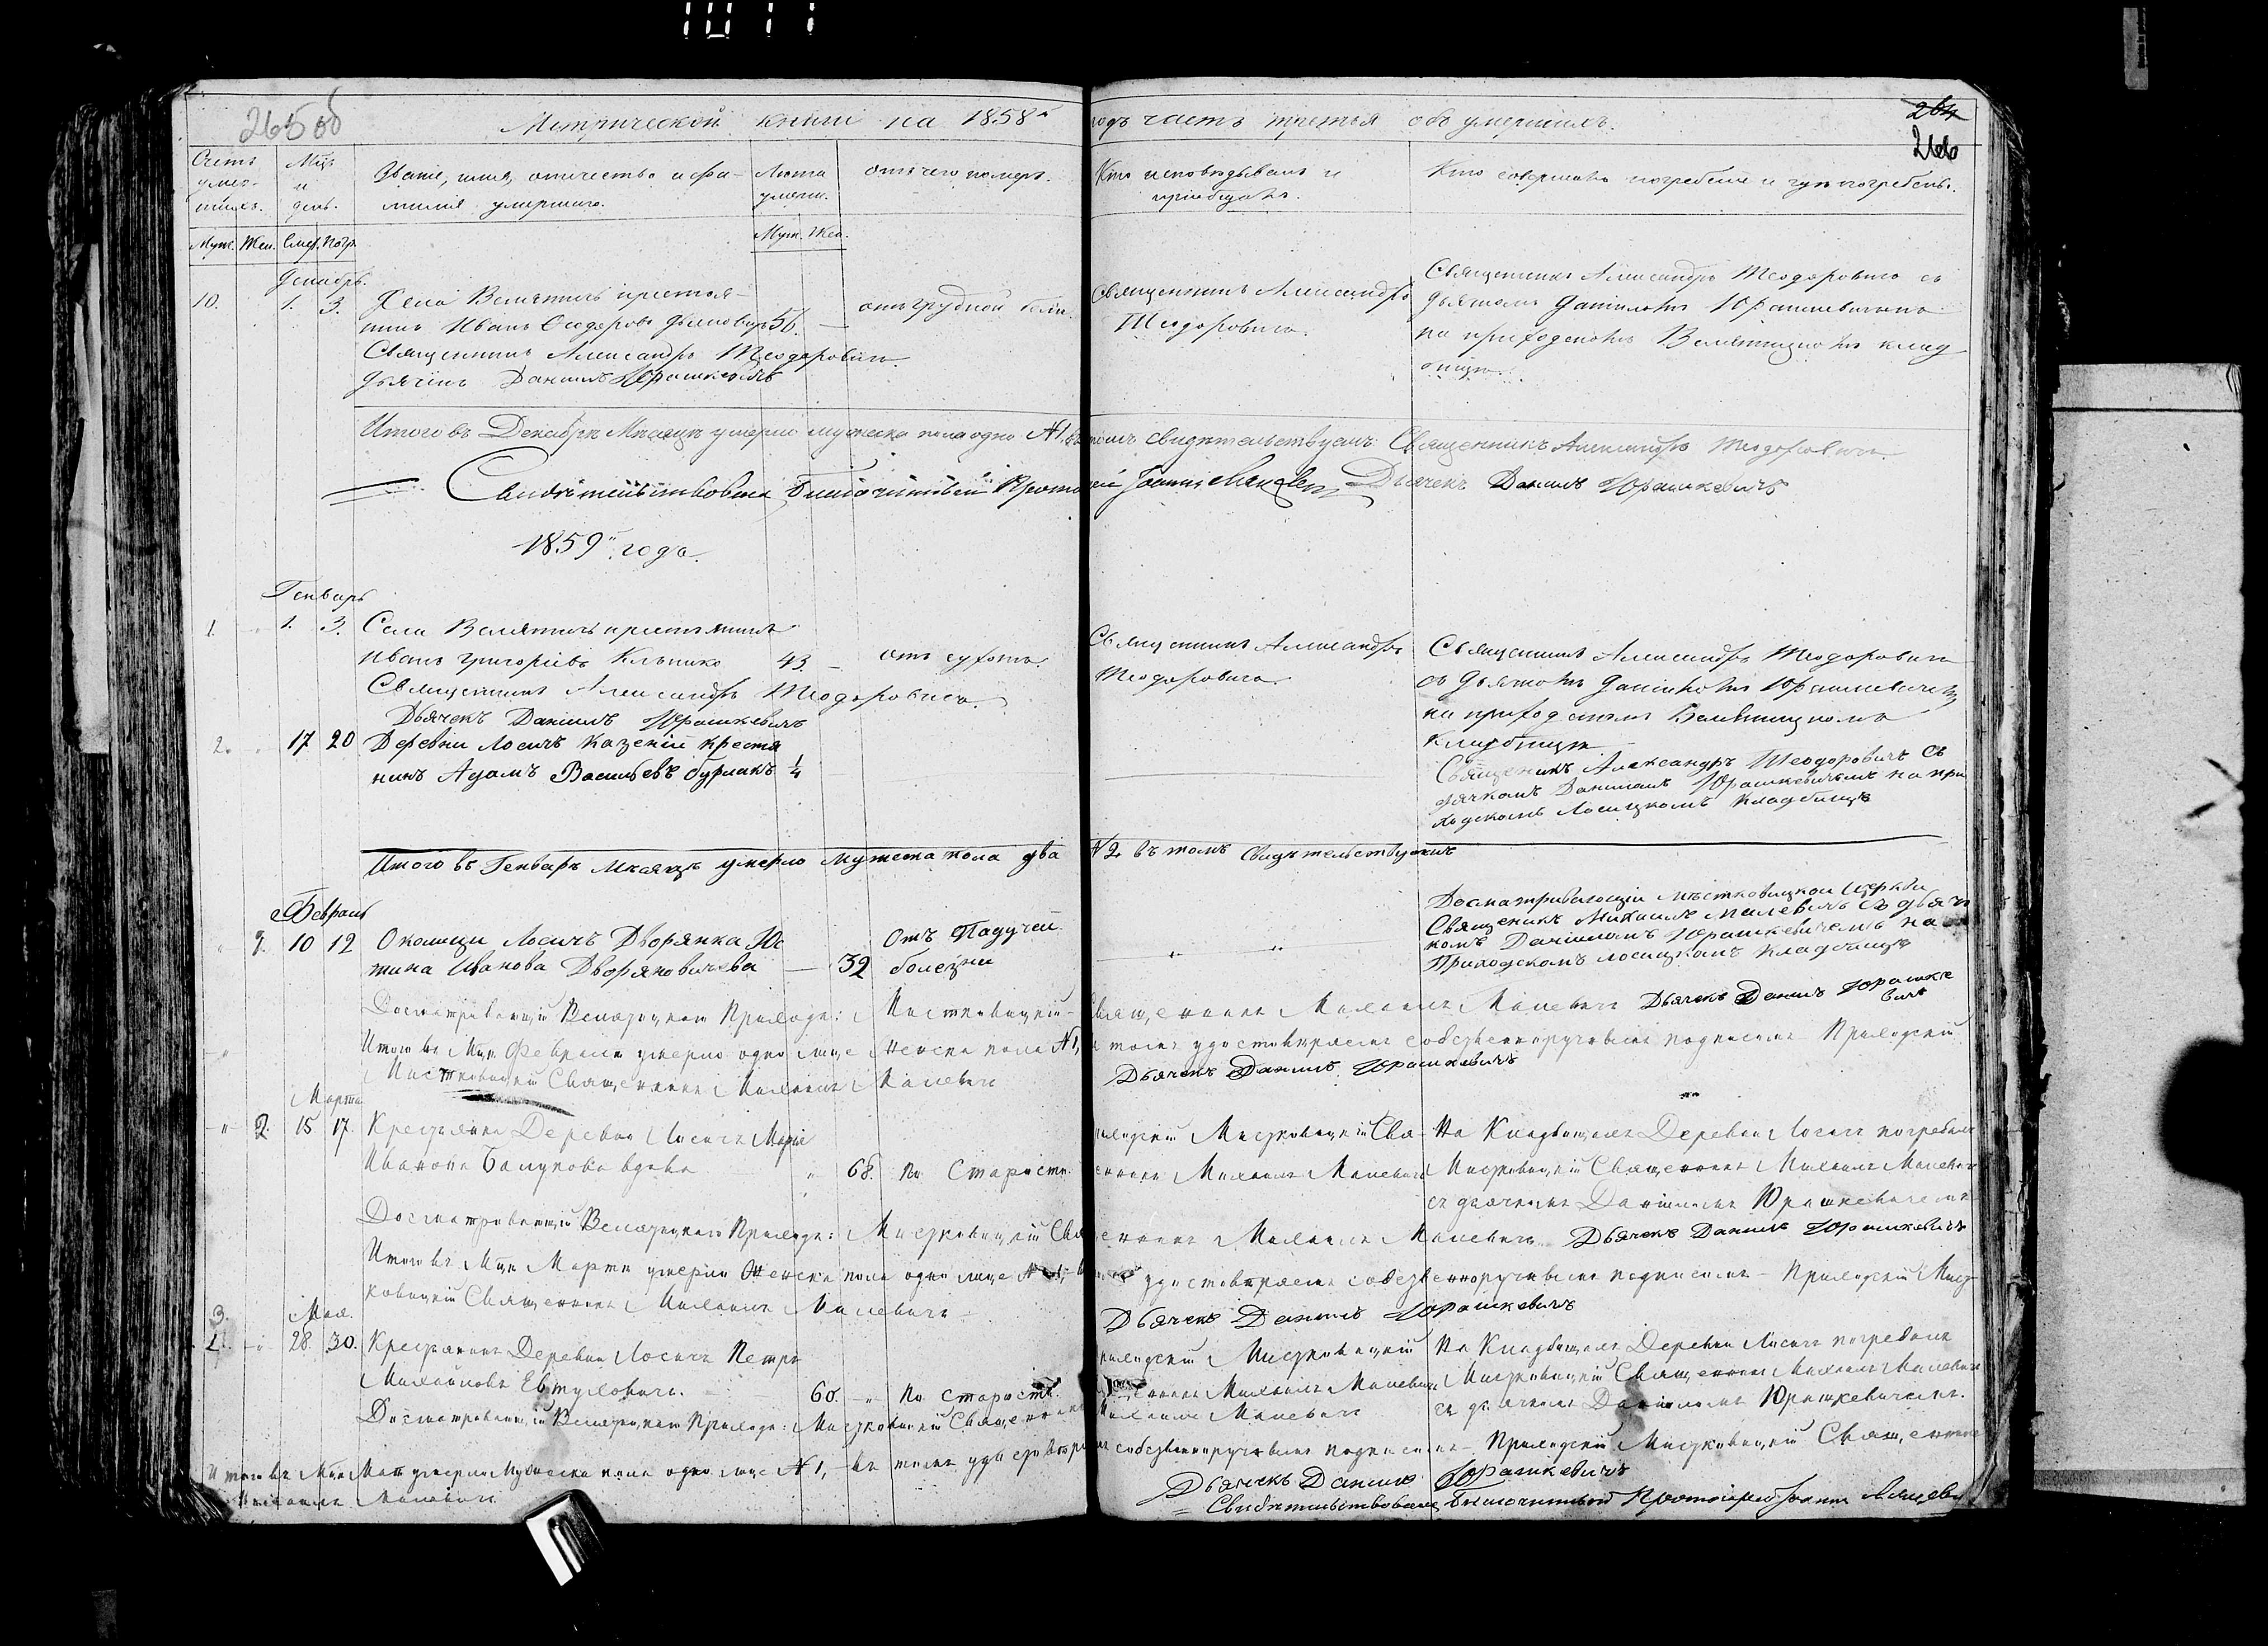 265 об
Метрической книги на 1858й
годъ часть третья объ умершихъ.
264
266
Счетъ умершихъ.
Мцъ и день.
Званіе, имя, отчество и фамилія умершаго.
Лѣта умерш.
отъ чего померъ.
Кто исповѣдывалъ и пріобщалъ.
Кто совершалъ погребеніе и гдѣ погребены.
Муж. Жен. Смер. Погр.
Муж. Жен.
Декабрь.
10. 1. 3. Села Велятичъ крестья-
нинъ Иванъ Ѳеодоровъ 56. — отъ грудной болѣ.
Священникъ Александръ Теодоровичъ.
дьячекъ Даніилъ Юрашкевичъ
Священникъ Александръ
Теодоровичъ.
Священникъ Александръ Теодоровичъ съ
дьячкомъ Даніиломъ Юрашкевичемъ
на приходскомъ Велятицкомъ клад
бищѣ.
Итого въ Декабрѣ Мѣсяцѣ умерло мужеска пола одно №1. въ томъ свидѣтельствуемъ: Священникъ Александръ Теодоровичъ.
Свидѣтельствовалъ Благочинный Протоіерей Іоаннъ Дьячекъ Даніилъ Юрашкевичъ
1859й годъ.
Генварь
1. 1. 3. Села Велятичъ крестьянинъ
Иванъ Григоріевъ 43. — отъ сухотъ.
Священникъ Александръ Теодоровичъ.
Дьячекъ Даніилъ Юрашкевичъ
Священникъ Александръ
Теодоровичъ
Священникъ Александръ Теодоровичъ
съ дьячкомъ Даніиломъ Юрашкевичемъ
на приходскомъ Велятицкомъ
кладбищѣ
2. 17 20 Деревни Лосичъ казеній крестья
нинъ Адамъ Васильевъ бурлакъ 1/4
Священикъ Александръ Теодоровичъ съ
дячкомъ Даниломъ Юрашкевичемъ на при
ходскомъ Лосицкомъ кладбищѣ
Итого въ Генварѣ Мѣсяцѣ умерло мужеска пола два №2. въ томъ свидѣтельствуемъ
Февраль
1. 10 12 Околицы Лосичъ Дворянка Юс
тина Иванова Дворяновичева — 32 Отъ Падучей
болезни
Досматривающій Мѣстковицкой Церкви
Священикъ Михаилъ Малевичъ съ дьяч
комъ Даніиломъ Юрашкевичемъ на
Приходскомъ лосицкомъ кладбищѣ
Досматривающій Велятицкой Приходъ: Мистковицкій Священникъ Михаилъ Малевичъ Дьячекъ Данилъ Юрашке
вичъ
Итого въ Мцѣ Февралѣ умерло одно лице женска пола №1, въ томъ удостовѣряемъ собственноручнымъ подписомъ Приходскій
Мистковицкій Священникъ Михаилъ Малевичъ Дьячекъ Данилъ Юрашкевичъ
Марта
2. 15 17. Крестьянка Деревни Лосичъ Марія
Иванова вдова 68. По Старости.
Мистковицкій Свя-
щенникъ Михаилъ Малевичъ
На Кладбищѣ Деревни Лосичъ погребалъ
Мистковицкій Священникъ Михаилъ Малевичъ
съ дьячкомъ Даніиломъ Юрашкевичемъ
Досматривающій Велятицкой Приходъ: Мистковицкій Священникъ Михаилъ Малевичъ Дьячекъ Данилъ Юрашкевичъ
Итого въ Мцѣ Мартѣ умерло женска пола одно лице №1, въ томъ удостовѣряемъ собственноручнымъ подписомъ — Приходскій Мист
ковицкій Священникъ Михаилъ Малевичъ Дьячекъ Данилъ Юрашкевичъ
Мая.
3.
1. 28. 30. Крестьянинъ Деревни Лосичъ Петръ
Михайловъ Евтуховичъ. 60. По старости.
Приходскій Мистковицкій
Священникъ Михаилъ Малевичъ
На Кладбищѣ Деревни Лосичъ погребалъ
Мистковицкій Священникъ Михаилъ Малевичъ
съ дьячкомъ Даніиломъ Юрашкевичемъ.
Досматривающій Велятицкой Приходъ: Мистковицкій Священникъ Михаилъ Малевичъ
Итого въ Мцѣ Маѣ умерло мужеска пола одно лице №1, въ томъ удостовѣряемъ собственноручнымъ подписомъ — Приходскій Мистковицкій Священникъ
Михаилъ Малевичъ
Дьячекъ Данилъ Юрашкевичъ
Свидѣтельствовалъ Благочинный Протоіерей Іоаннъ